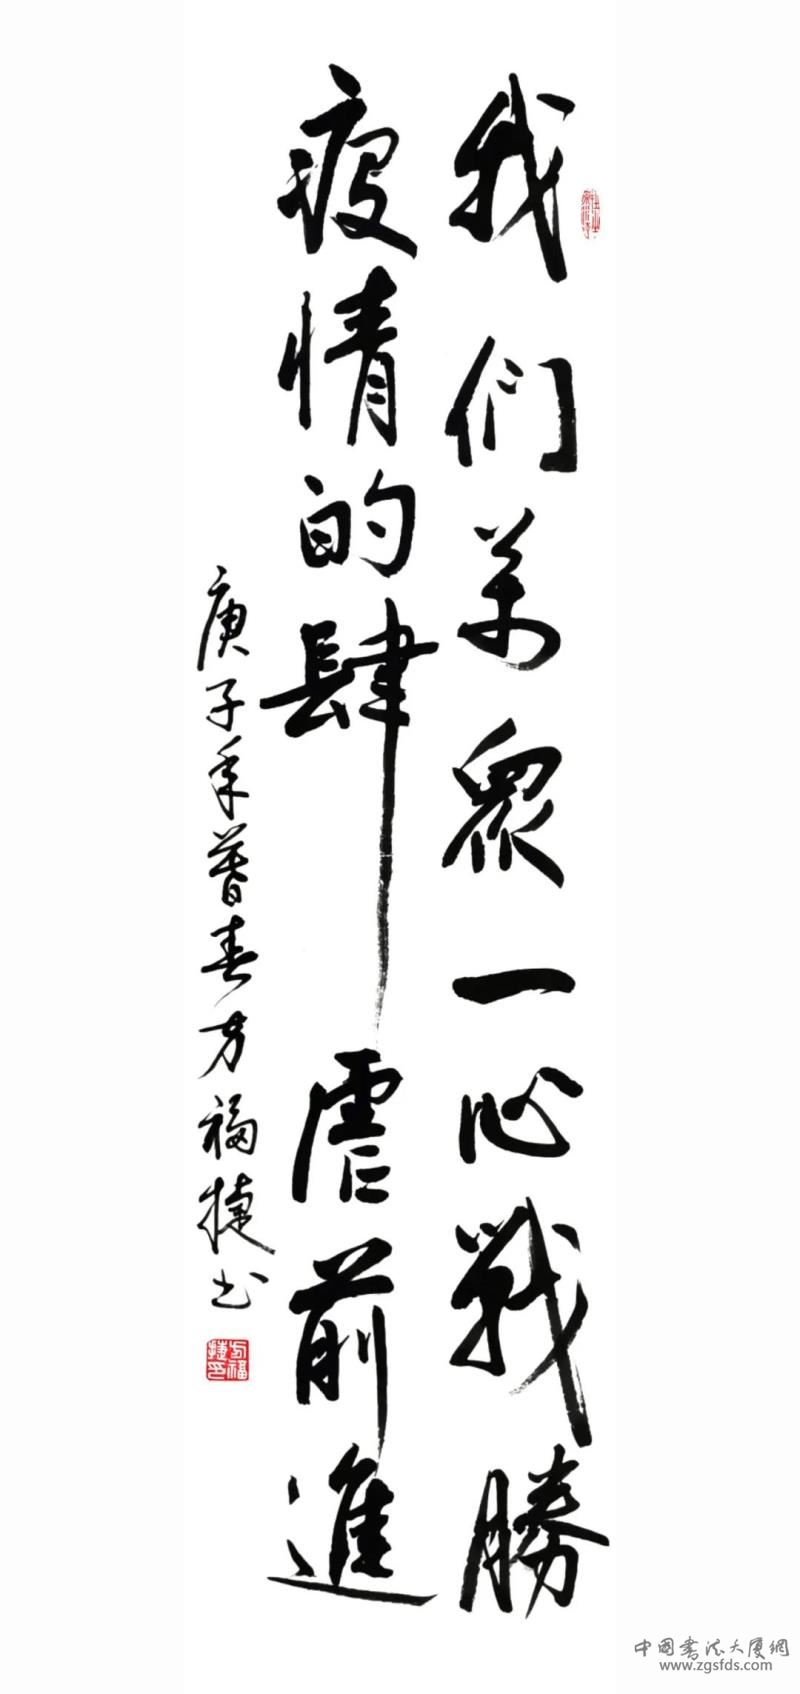 我们万眾一心戰勝
疫情的肆虐前進
庚子年暮春方福捷书
方福捷印
中國書法大厦網
www.zgsfds.com